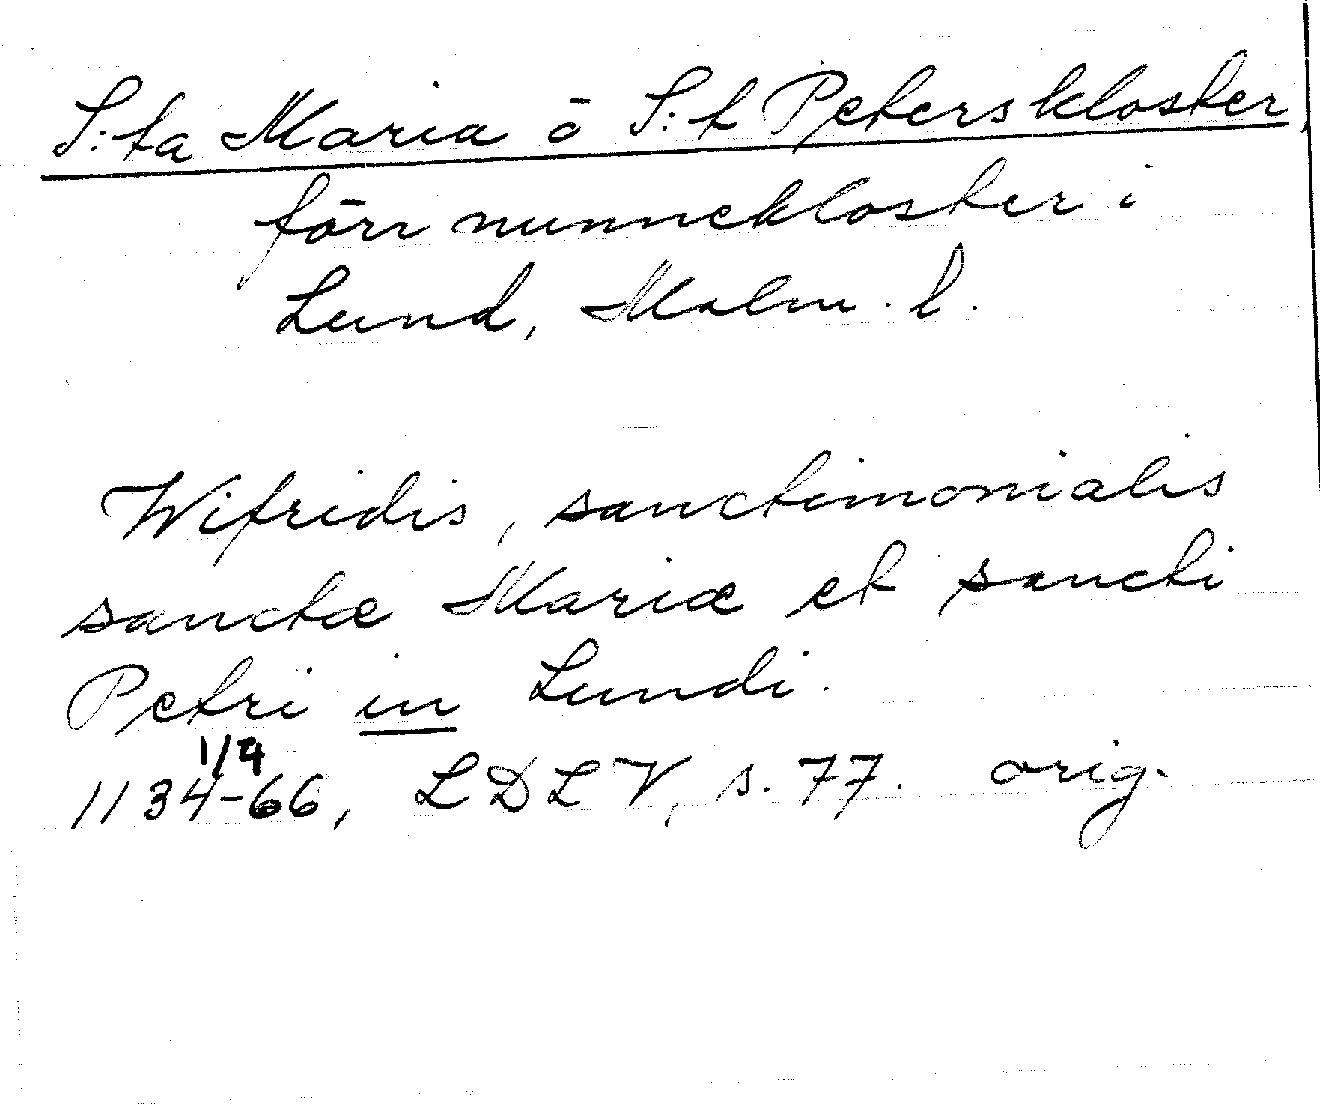 S:ta Maria o S:t Peters kloster,
förr nunnekloster i
Lund, Malm. l.
Witridis, sanctimonialis
sanctæ Mariæ et sancti
Petri in Lundi.
1/9
1134-66, LDLV, s. 77. orig.